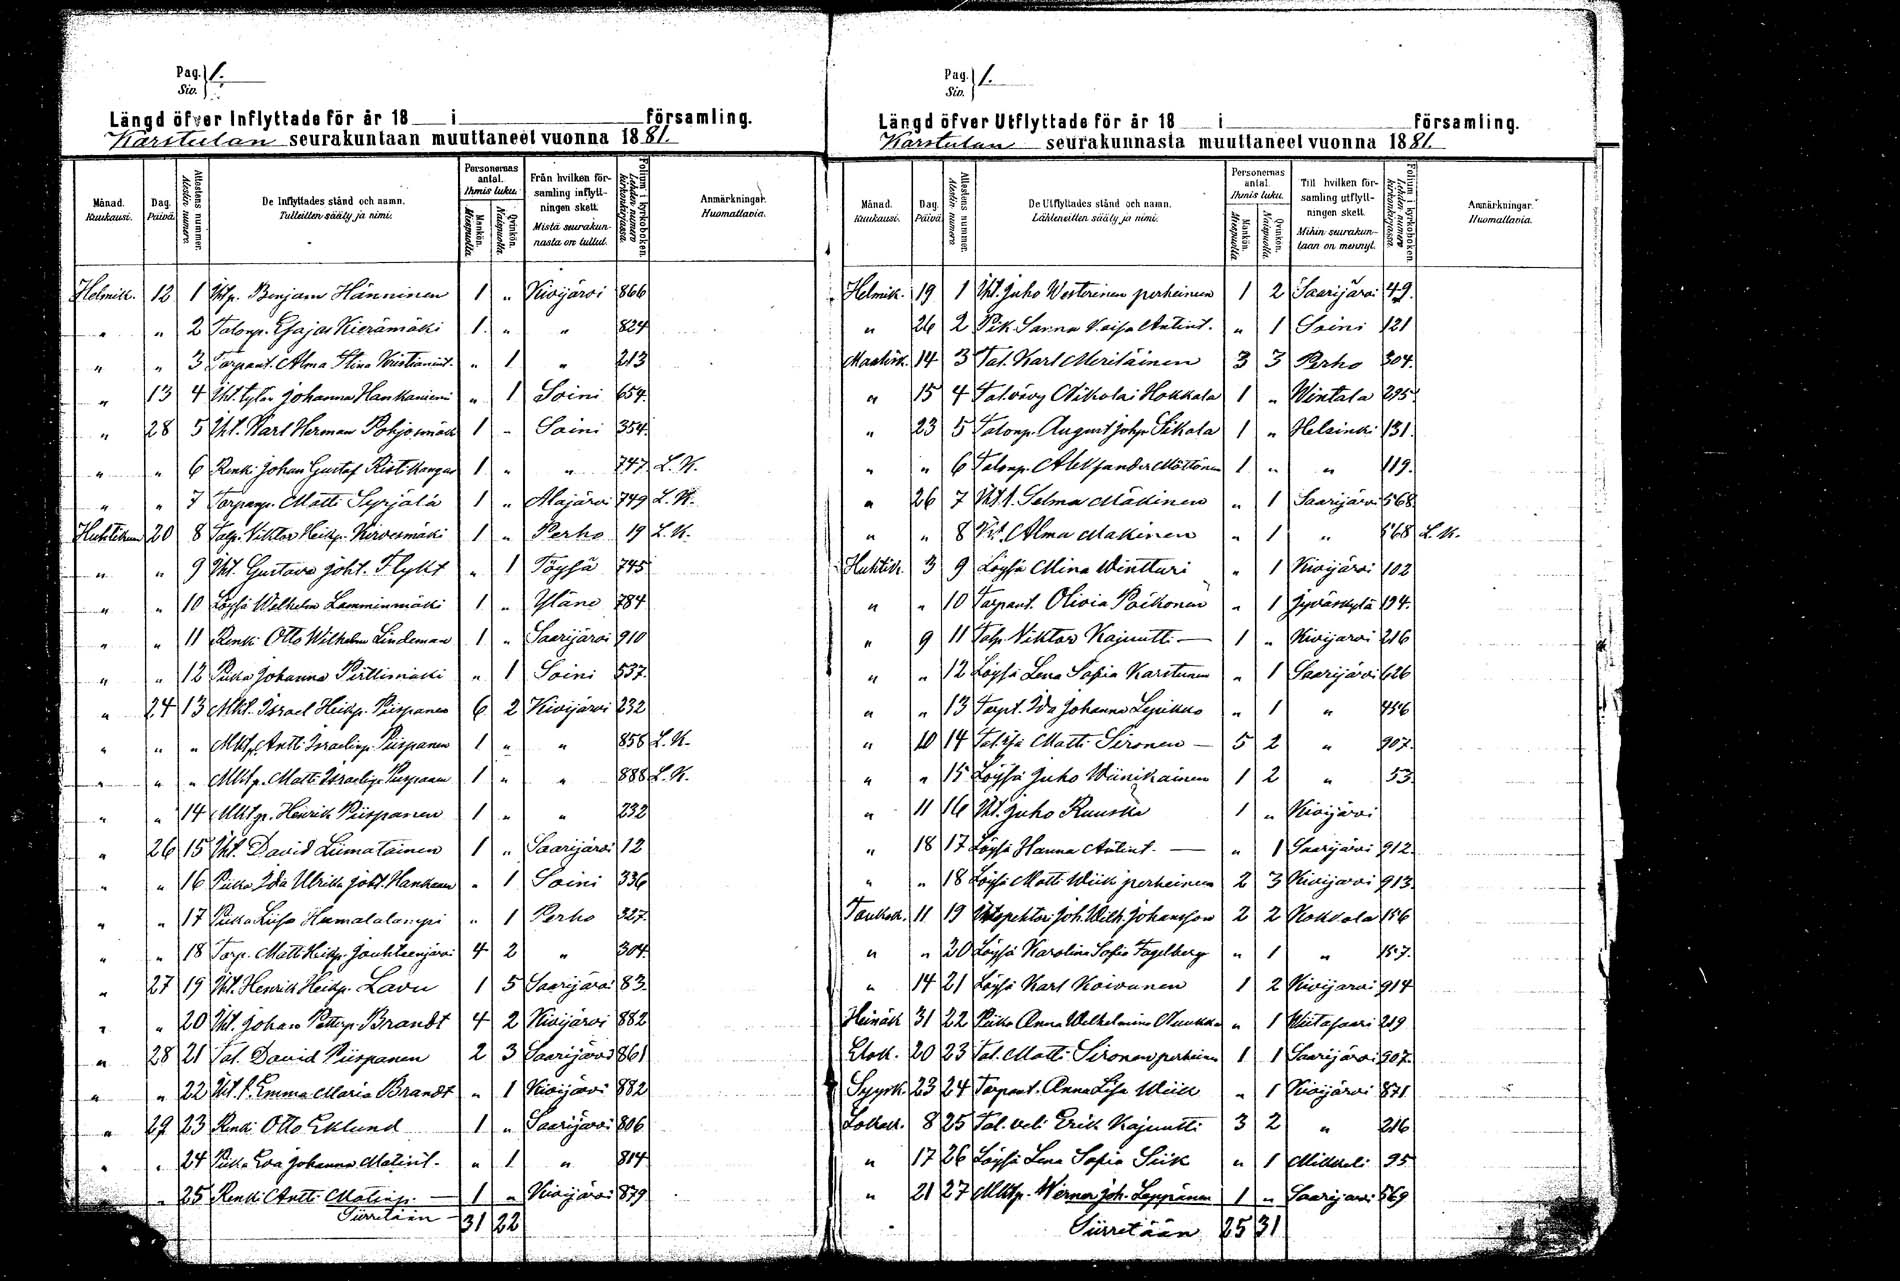 Pag. Siv. 1.
Längd öfver Inflyttade för år 18 i församling.
Karstulan seurakuntaan muuttaneet vuonna 1881.
Månad. Kuukausi.
Dag. Päivä.
Attestens nummer. Alestin numero.
De Inflyttades stånd och namn. Tulleitten sääty ja nimi.
Personernas antal. Ihmis luku.
Mankön. Miespuolia
Qvinkön. Naispuolia
Från hvilken församling inflyttningen skett. Mistä seurakunnasta on tullut.
Folium i kyrkoboken. Lehden numero kirkonkirjassa.
Anmärkningar. Huomattavia.
Helmik. 12 1 Iht.p. Benjam Hänninen 1 " Kivijärvi 866
" " 2 Talonp. Esajas Kierämäki 1 " " 824
" " 3 Torpant. Alma Stina Kristianint. " 1 " 213
" 13 4 Iht. tytär Johanna Hankaniemi " 1 Soini 654.
" 28 5 Iht. Karl Herman Pohjosmäki 1 " Soini 354.
" " 6 Renki Johan Gustaf Ristikangas 1 " " 747 L. K.
" " 7 Torpanp. Matti Syrjälä 1 " Alajärvi 749 L. K.
Huhtikuu 20 8 Talp. Viktor Heikp. Kirvesmäki 1 " Perho 19 L. K.
" " 9 Iht. Gustava Joht. Flykt " 1 Töysä 745
" " 10 Löysä Wilhelm Lamminmäki 1 " Yläne 784
" " 11 Renki Otto Wilhelm Lindeman 1 " Saarijärvi 910
" " 12 Piika Johanna Pirttimäki " 1 Soini 537.
" 24 13 Mkt. Israel Heikp. Piispanen 6 2 Kivijärvi 232
" " " Mktp. Antti Israelinp. Piispanen 1 " " 858 L. K.
" " " Mktp. Matti Israelinp. Piispanen 1 " " 888 L. K.
" " 14 Mktp. Henrik Piispanen 1 " " 232
" 26 15 Iht. David Liimatainen 1 " Saarijärvi 12
" " 16 Piika Ida Ulrika Joht. Hankanen " 1 Soini 336
" " 17 Piika Liisa Humalalampi " 1 Perho 327.
" " 18 Torp. Matti Heikp. Jouhtenjärvi 4 2 " 304.
" 27 19 Iht. Henrik Heikp. Lavu 1 5 Saarijärvi 83.
" " 20 Iht. Johan Petterp. Brandt 4 2 Kivijärvi 882
" 28 21 Tal. David Piispanen 2 3 Saarijärvi 861
" " 22 Iht. t. Emma Maria Brandt " 1 Kivijärvi 882
" 29 23 Renki Otto Eklund 1 " Saarijärvi 806
" " 24 Piika Eva Johanna Matint. " 1 " 814
" " 25 Renki Antti Matinp. 1 " Kivijärvi 879
Siirretään 31 22
Pag. Siv. 1.
Längd öfver Utflyttade för år 18 i församling.
Karstulan seurakunnasta muuttaneet vuonna 1881.
Månad. Kuukausi.
Dag. Päivä.
Attestens nummer. Alestin numero.
De Utflyttades stånd och namn. Lähteneitten sääty ja nimi.
Personernas antal. Ihmis luku.
Mankön. Miespuolia
Qvinkön. Naispuolia
Till hvilken församling utflyttningen skett. Mihin seurakuntaan on mennyt.
Folium i kyrkoboken. Lehden numero kirkonkirjassa.
Anmärkningar. Huomattavia.
Helmik. 19 1 Iht. Juho Westerinen perheineen 1 2 Saarijärvi 49.
" 26 2 Piik. Sanna Kaisa Antint. " 1 Soini 121
Maalisk. 14 3 Tal. Karl Meriläinen 3 3 Perho 304.
" 15 4 Tal. vävy Nikolai Hokkala 1 " Wintala 295.
" 23 5 Talonp. August Johp. Sikala 1 " Helsinki 131.
" " 6 Talonp. Aleksander Möttönen 1 " " 119.
" 26 7 Iht. t. Selma Mäkinen " 1 Saarijärvi 568
" " 8 Iht. Alma Makinen " 1 " 568 L. K.
Huhtik. 3 9 Löysä Mina Wintturi " 1 Kivijärvi 102
" " 10 Torpant. Olivia Poikonen " 1 Jyväskylä 194.
" 9 11 Talp. Viktor Kajuutti 1 " Kivijärvi 216
" " 12 Löysä Lena Sofia Karstunen " 1 Saarijärvi 626
" " 13 Torpt. Ida Johanna Lepikko " 1 " 456
" 10 14 Matti Sironen 5 2 " 907.
" " 15 Löysä Juho Wiinikainen 1 2 " 53
" 11 16 Iht. Juho Ruuska 1 " Kivijärvi
" 18 17 Löysä Hanna Antint. " 1 Saarijärvi 912.
" " 18 Löysä Matti Wiik perheineen 2 3 Kivijärvi 913.
Toukok. 11 19 Inspektori Joh. Wilh. Johansson 2 2 Kokkola 156
" " 20 Löysä Karolina Sofia Fagelberg " 1 " 157.
" 14 21 Löysä Karl Koivunen 1 2 Kivijärvi 914
Heinäk 31 22 Piika Anna Wilhelmina Nuukka " 1 Wiitasaari 219
Elok. 20 23 Tal. Matti Sironen perheineen 1 1 Saarijärvi 907.
Syysk. 23 24 Torpant. Anna Lisa Wiik " 1 Kivijärvi 871
Lokak. 8 25 Tal. veli Erik Kajuutti 3 2 " 216
" 17 26 Löysä Lena Sofia Siik " 1 Mikkeli 95
" 21 27 Mktp. Werner Joh. Leppänen 1 " Saarijärvi 569
Siirretään 25 31